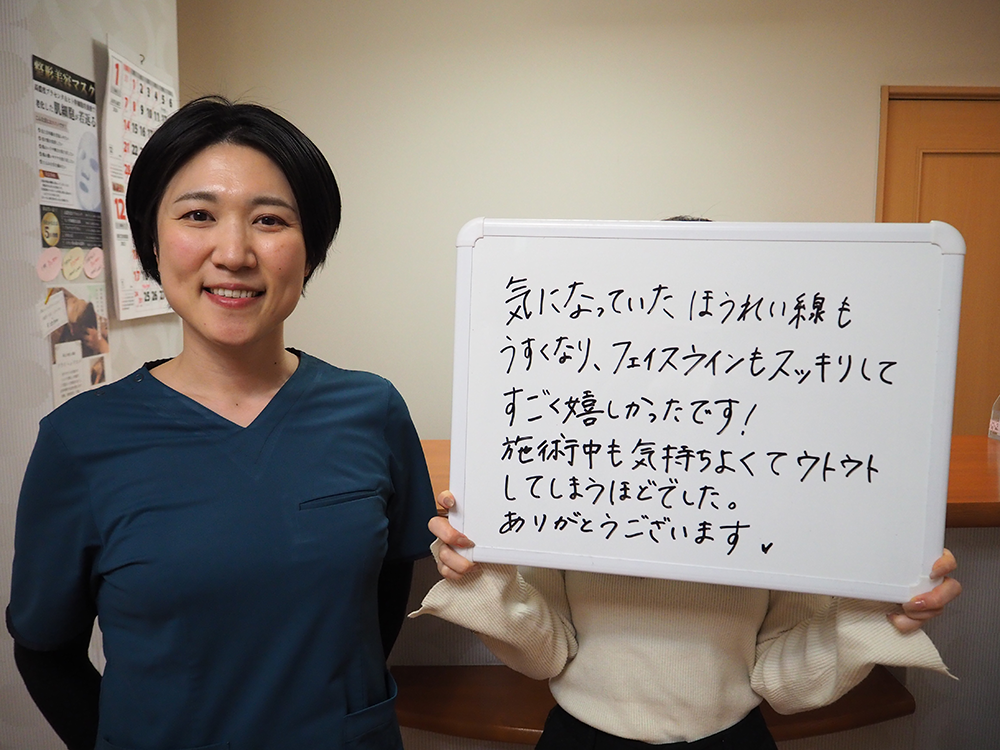 整形美容マスク
肌細胞が若返る
1
12
気になっていた ほうれい線も
うすくなり、フェイスラインもスッキリして
すごく嬉しかったです!
施術中も気持ちよくてウトウト
してしまうほどでした。
ありがとうございます